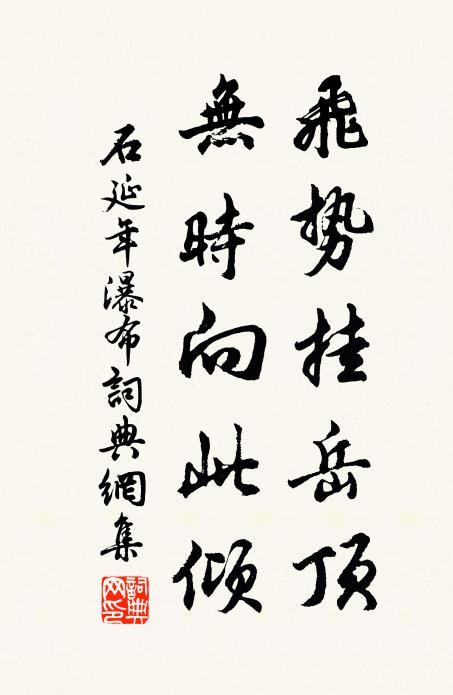 飛势挂岳頂
無時向此傾
石延年瀑布詞典網集
詞典网印